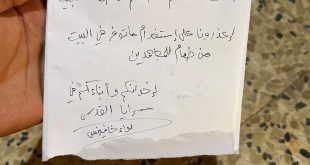 إعذرونا على إستخدام ما توفر في البيت
من طعام للمجاهدين
إخوانكم وأبناءكم في
سرايا القدس
لواء خانيونس